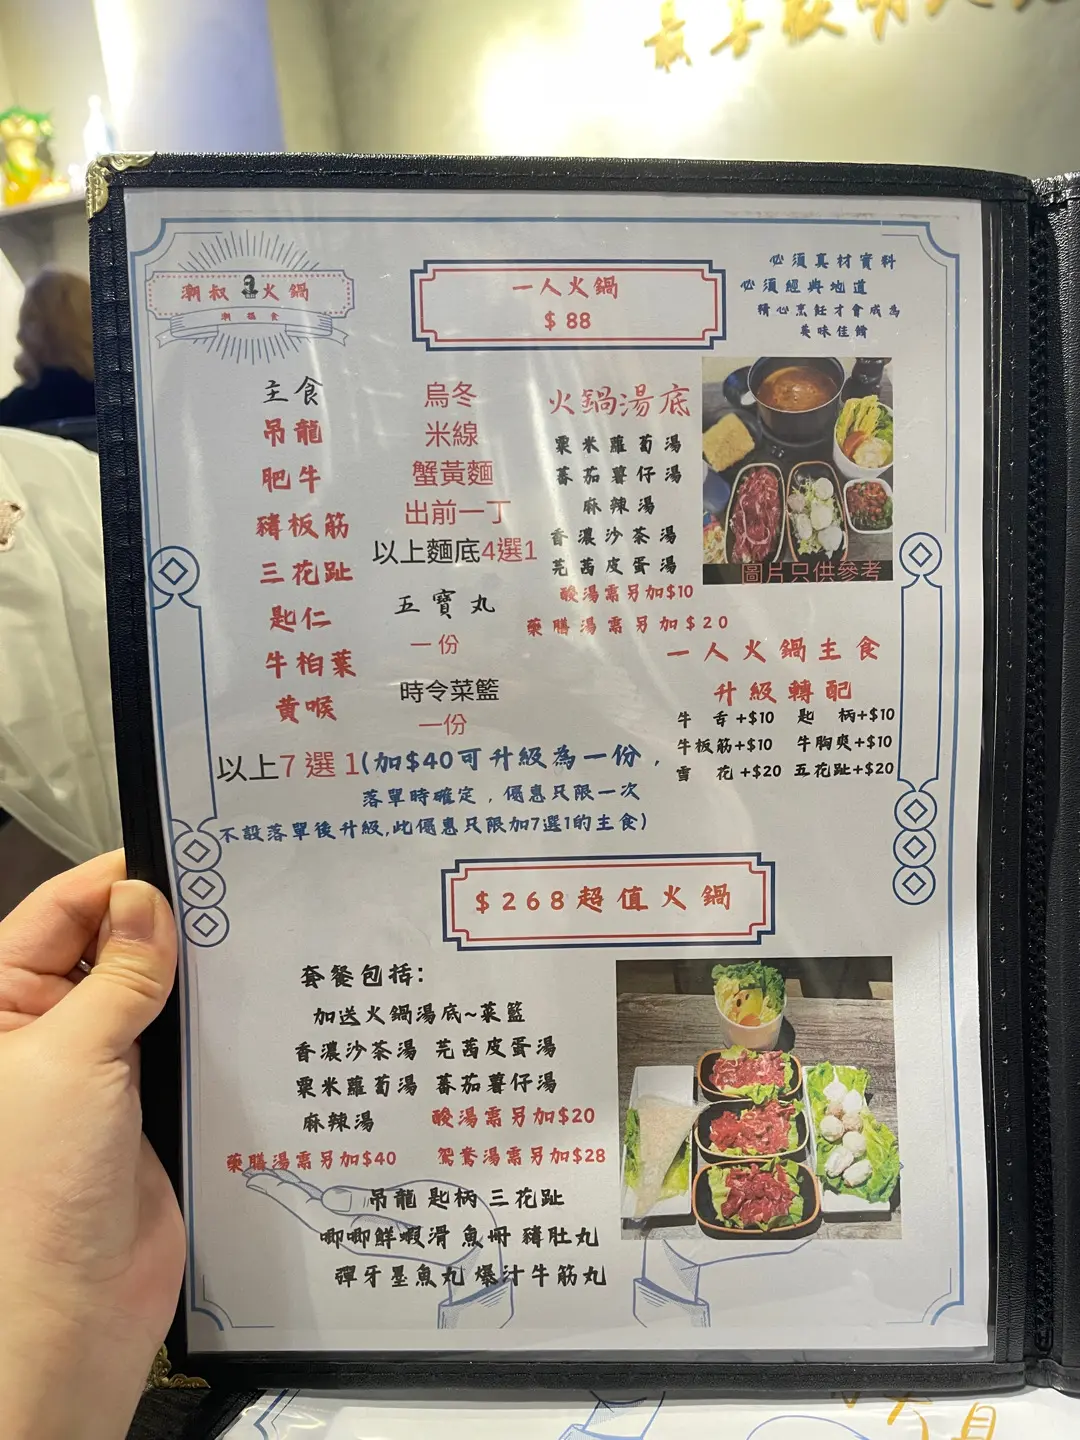 潮叔 火鍋
潮 極 食
一人火鍋
$ 88
必須真材實料
必須經典地道
精心烹飪才會成為
美味佳餚
主食
吊龍
肥牛
豬板筋
三花趾
匙仁
牛柏葉
黄喉
烏冬
米線
蟹黃麵
出前一丁
以上麵底4選1
五寶丸
一份
時令菜籃
一份
以上7選1(加$40可升級為一份，
落單時確定，優惠只限一次
不設落單後升級,此優惠只限加7選1的主食)
火鍋湯底
粟米蘿蔔湯
蕃茄薯仔湯
麻辣湯
香濃沙茶湯
芫茜皮蛋湯
酸湯需另加$10
藥膳湯需另加$20
圖片只供參考
一人火鍋主食
升級轉配
牛舌+$10 匙柄+$10
牛板筋+$10 牛胸爽+$10
雪花+$20 五花趾+$20
$268超值火鍋
套餐包括:
加送火鍋湯底~菜籃
香濃沙茶湯 芫茜皮蛋湯
粟米蘿蔔湯 蕃茄薯仔湯
麻辣湯 酸湯需另加$20
藥膳湯需另加$40 鴛鴦湯需另加$28
吊龍 匙柄 三花趾
唧唧鮮蝦滑 魚冊 豬肚丸
彈牙墨魚丸 爆汁牛筋丸